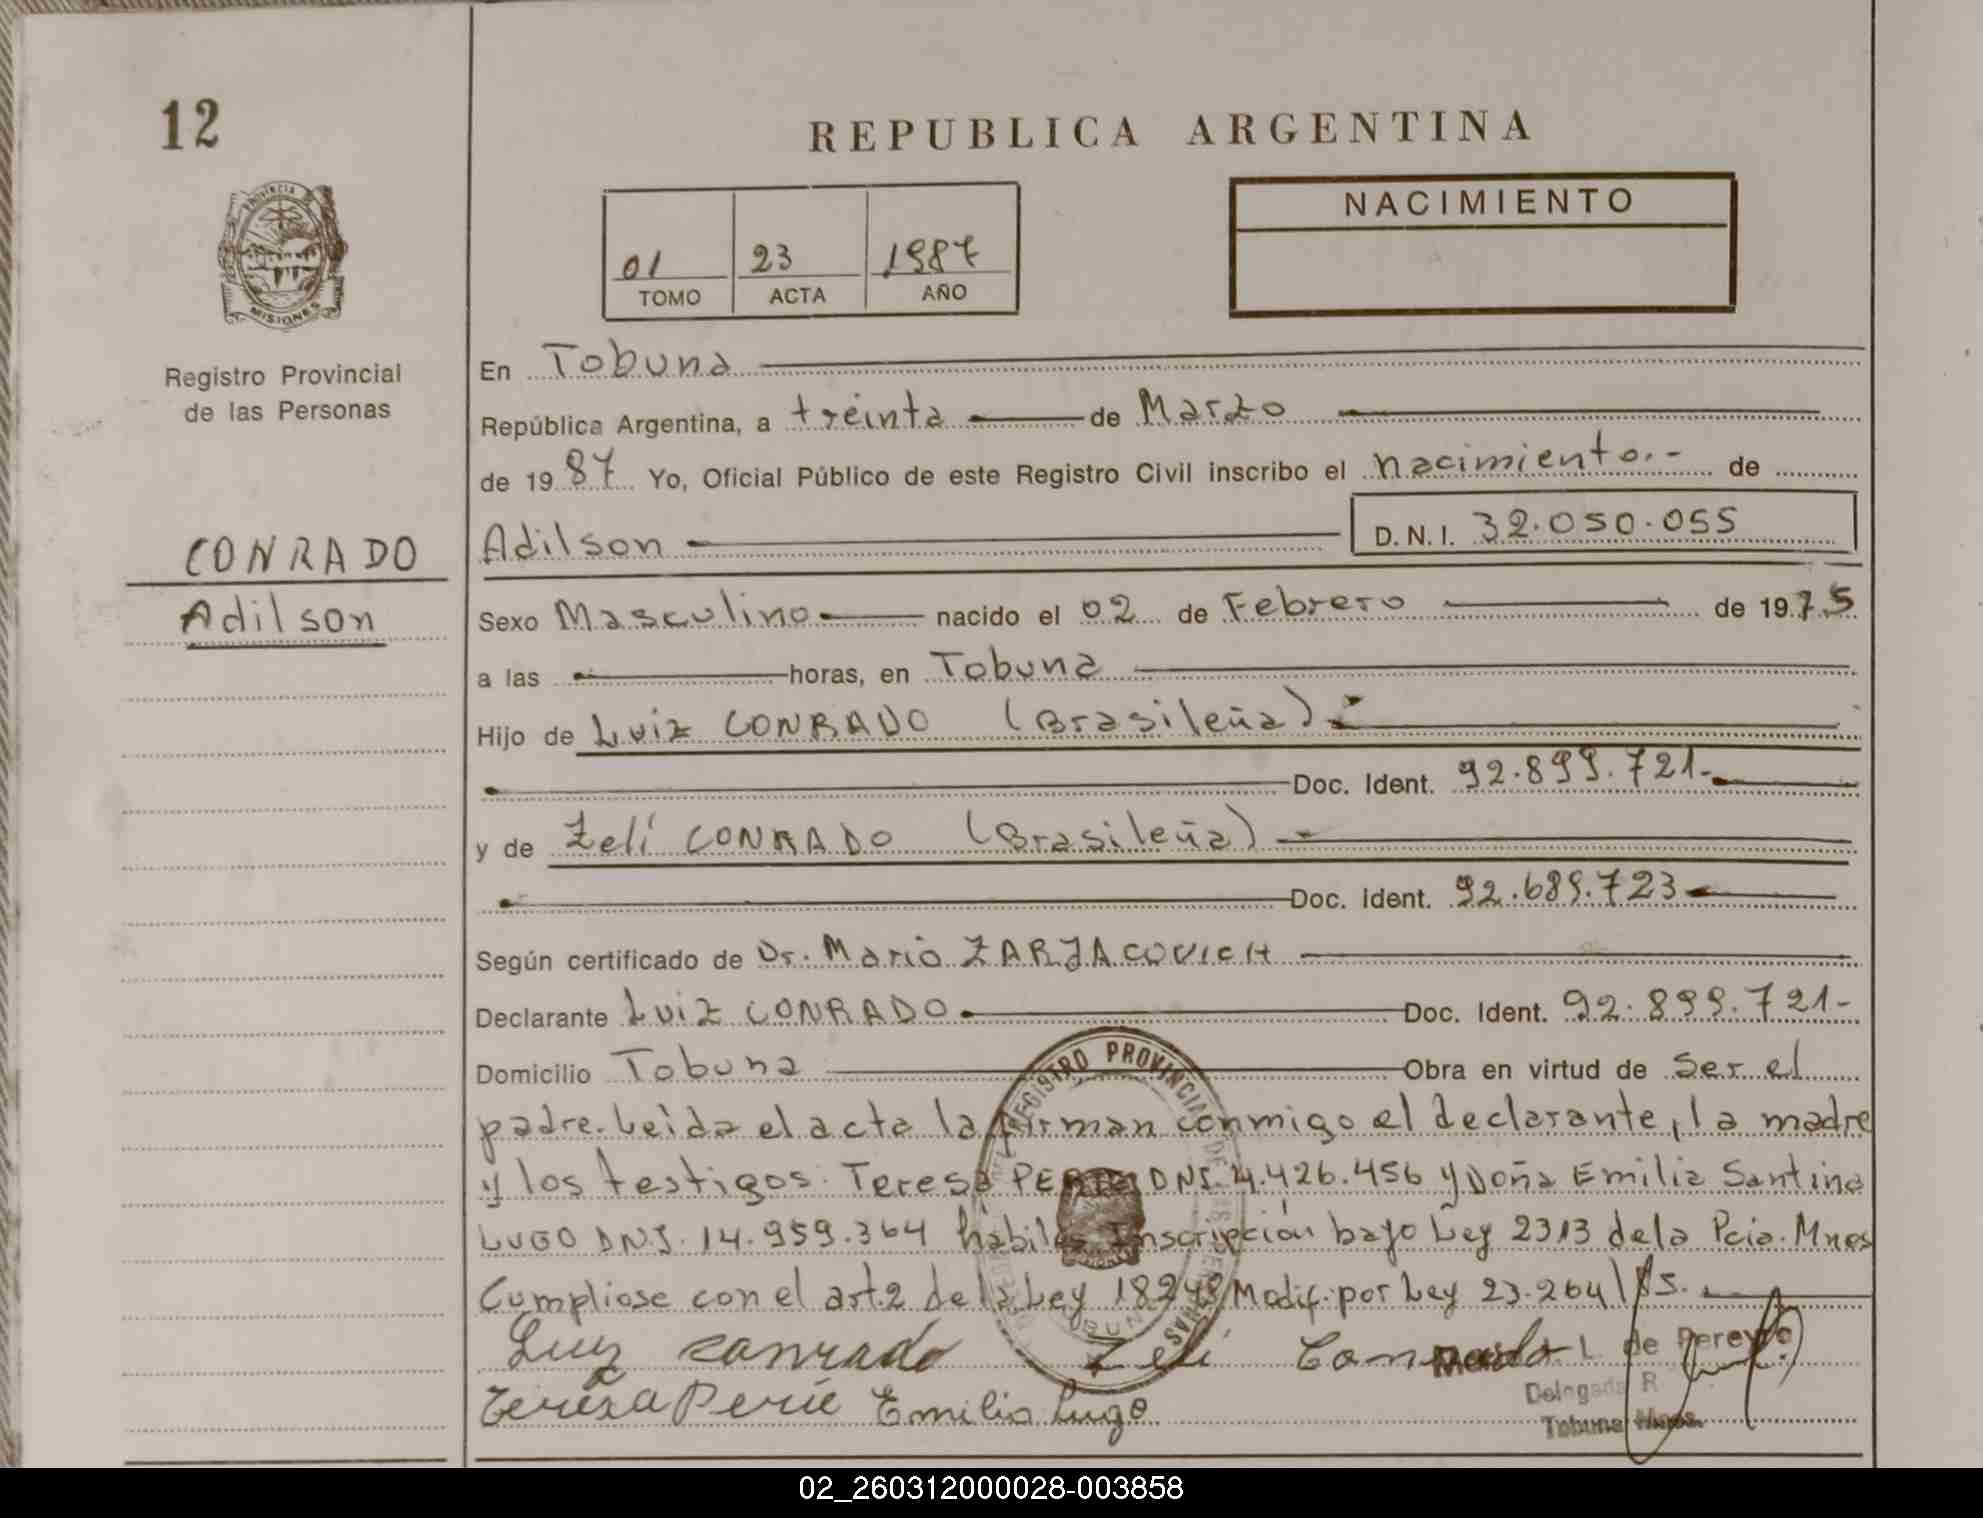 12
REPUBLICA ARGENTINA
PROVINCIA DE
MISIONES
Registro Provincial
de las Personas
CONRADO
Adilson
01 23 1987
TOMO ACTA AÑO
NACIMIENTO
En Tobuna
República Argentina, a treinta de Marzo
de 1987 Yo, Oficial Público de este Registro Civil inscribo el nacimiento.- de
Adilson D.N.I. 32.050.055
Sexo Masculino nacido el 02 de Febrero de 1975
a las horas, en Tobuna
Hijo de Luiz CONRADO (Brasileña)
Doc. Ident. 92.899.721-
y de Zelí CONRADO (Brasileña)
Doc. Ident. 92.689.723
Según certificado de Dr. Mario ZARJACOVICH
Declarante Luiz CONRADO Doc. Ident. 92.899.721-
Domicilio Tobuna Obra en virtud de ser el
padre. Leida el acta la firman conmigo el declarante, la madre
y los testigos: Teresa PERIE DNI. 4.426.456 y Doña Emilia Santina
LUGO DNI. 14.959.364 habiles Inscripción bajo Ley 2313 de la Pcia. Mnes
Cumpliose con el art. 2 de la Ley 18248 Modif. por Ley 23.264/85.
REGISTRO PROVINCIAL DE LAS PERSONAS
TOBUNA
Luiz Conrado Zeli Conrado
L. de Pereyra
Teresa Perie Emilia Lugo
Delegada R
Tobuna Mnes.
02_260312000028-003858